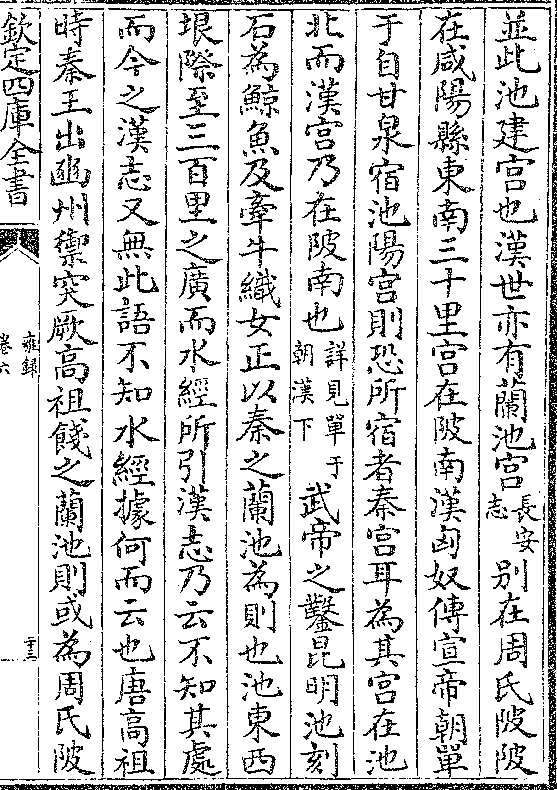 並此池建宫也漢世亦有蘭池宫長安志别在周氏陂陂
在咸陽縣東南三十里宫在陂南漢匈奴傳宣帝朝單
于自甘泉宿池陽宫則恐所宿者秦宫耳為其宫在池
北而漢宫乃在陂南也詳見單于朝漢下武帝之鑿昆明池刻
石為鯨魚及牽牛織女正以秦之蘭池為則也池東西
垠際至三百里之廣而水經所引漢志乃云不知其處
而今之漢志又無此語不知水經據何而云也唐高祖
時秦王出豳州禦突厥高祖餞之蘭池則或為周氏陂
欽定四庫全書
雍録
卷六
二十三